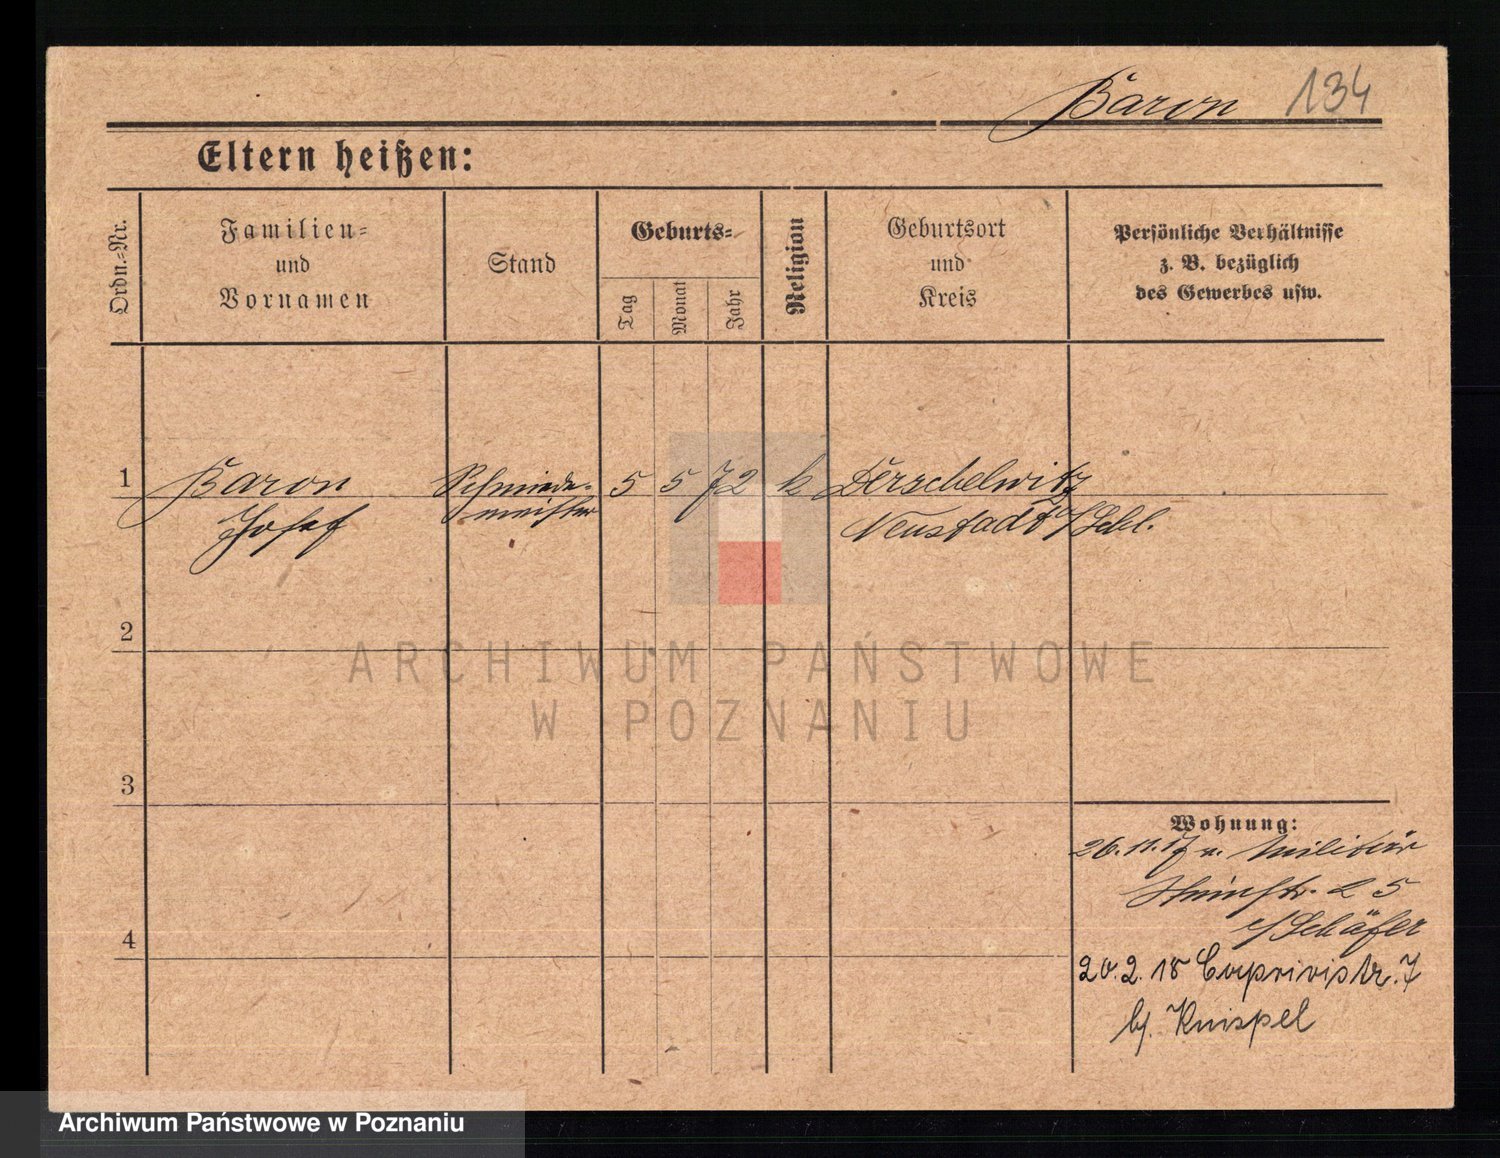 Baron 134
Eltern heißen:
Ordn.-Nr.
Familien-
und
Vornamen
Stand
Geburts-
Tag
Monat
Jahr
Religion
Geburtsort
und
Kreis
Persönliche Verhältnisse
z. B. bezüglich
des Gewerbes usw.
1 Baron Schmiede- 5 5 72 k Derschelwitz
Josef meister Neustadt o/Schl.
2
3
4
Wohnung:
26.11.17 v. Militär
25
Schäfer
20.2.18 Caprivistr. 7
bf. Knispel
ARCHIWUM PAŃSTWOWE
W POZNANIU
Archiwum Państwowe w Poznaniu